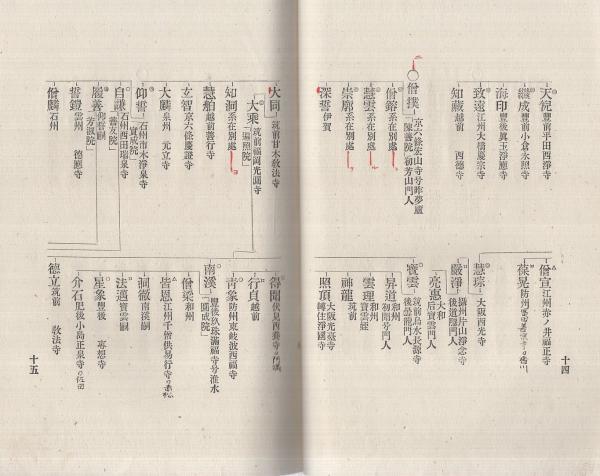 天倪豊前平田西淨寺
繼成豊前小倉永照寺
海印豊後眞玉淨應寺
致遠江州大橋慶宗寺
知藏越前 西德寺
僧樸
京六條宏山寺号昨夢廬
「陳善院」初芳山門人
僧鎔系在別處
慧雲系在別處
崇廓系在別處
深誓伊賀
僧宣江州赤ノ井福正寺
葆晃防州
慧琮大阪西光寺
嚴淨攝州片山淨念寺
後道隱門人
亮惠大和
后寶雲門人
寶雲筑前鳥水長源寺
後曇龍門人
昇道和州
初聞号門人
雲理和州
寶雲姪
神龍筑前
照頂大阪光臺寺
轉住淨國寺
十四
大同筑前甘木教法寺
大乘筑前福岡光圓寺
「遍照院」
知洞系在別處
慧舶越前善行寺
玄智京六條慶證寺
大麟泉州 元立寺
仰誓石州市木淨泉寺
「實成院」
自謙石州西田瑞泉寺
「普友院」
履善仰誓嗣
「芳淑院」
誓鎧雲州 德應寺
僧麟石州
得聞伏見西養寺
行貞越前
靑象防州東岐波西福寺
南溪豊後玖珠滿福寺号淮水
「開成院」
僧梁和州
皆恩江州千僧供易行寺
洞徹南溪嗣
法邁寶雲嗣
星象豊後 專想寺
介石肥後小島正泉寺
德立筑前 敎法寺
十五